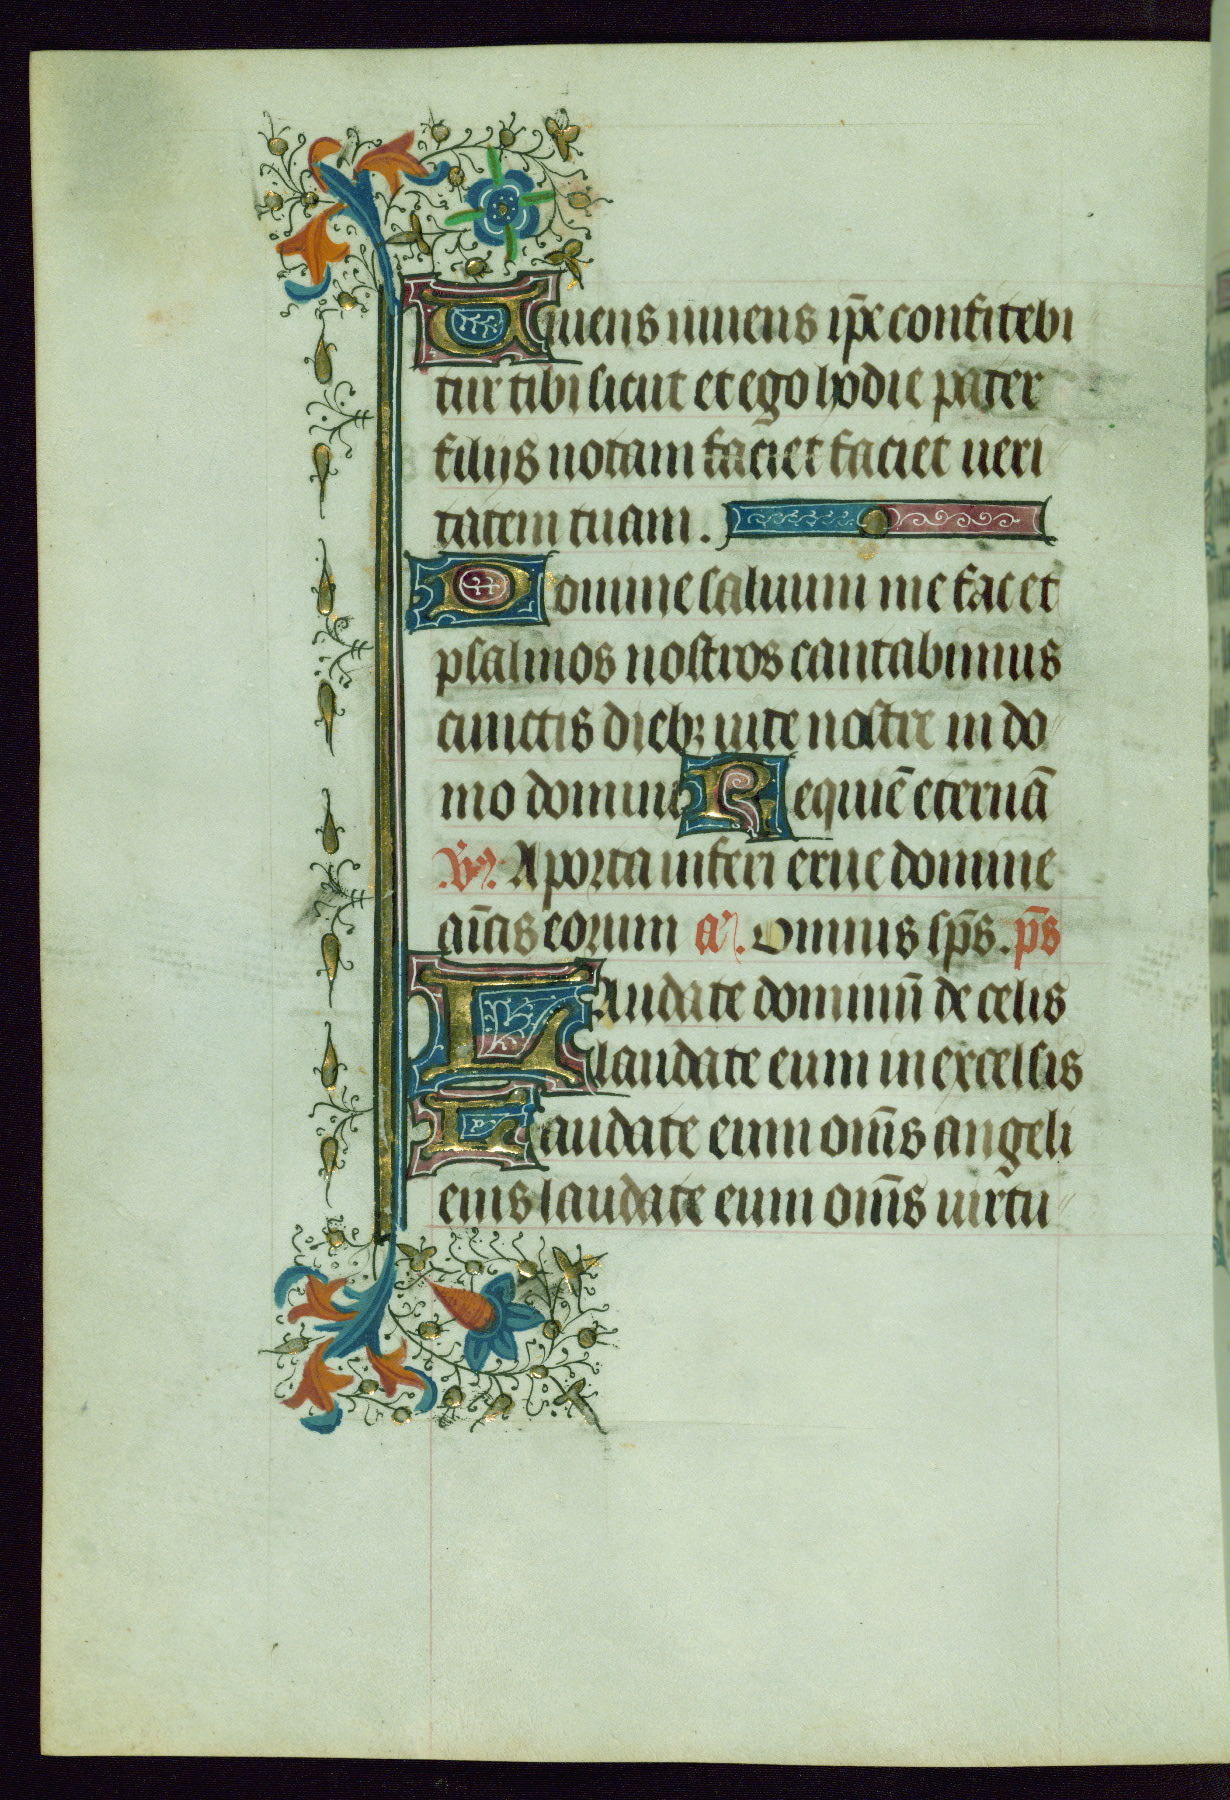 Viuens uiuens ip̄e confitebi
tur tibi sicut et ego hodie pater
filijs notam faciet faciet ueri
tatem tuam.
Domine saluum me fac et
psalmos nostros cantabimus
cunctis dieb; uite nostre in do
mo domini Requiē eternā
.V̄. A porta inferi erue domine
aīas eorum a͛. Omnis sp̄s. p̄s
Laudate dominū de celis
laudate eum in excelsis
Laudate eum om̄s angeli
eius laudate eum om̄s uirtu